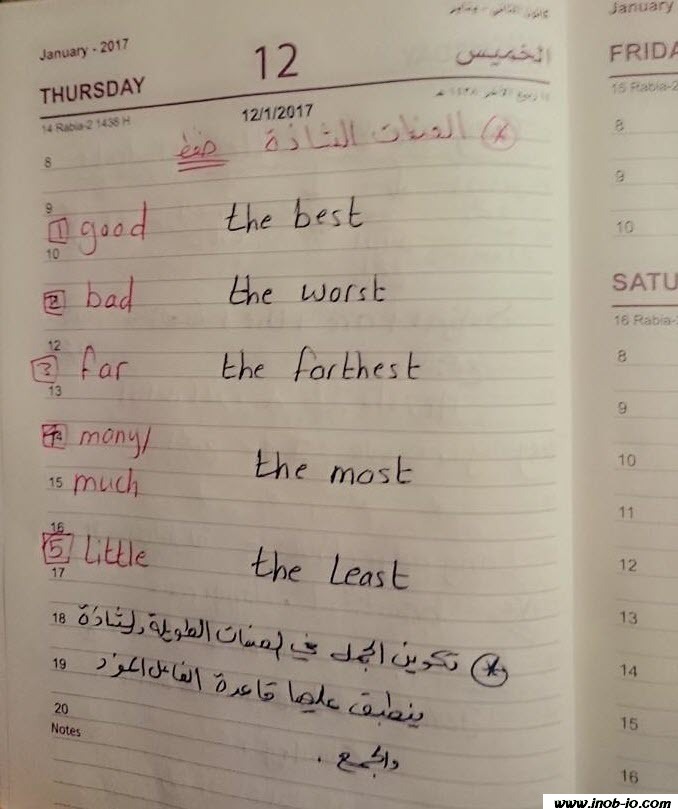 كانون الثاني - يناير
January - 2017
12
الخميس
THURSDAY
14 Rabia-2 1438 H
12/1/2017
* الصفات الشاذة حفظ
8
9
1 good the best
10
2 bad the worst
12
3 far the farthest
13
4 many/
the most
15 much
16
5 Little the Least
17
18 * تكوين الجمل في الصفات الطويلة والشاذة
19 ينطبق عليها قاعدة الفاعل المفرد
20
Notes
والجمع .
January
FRIDA
15 Rabia-2
8
9
10
SATU
16 Rabia-
8
9
10
11
12
13
14
15
16
www.inob-io.com